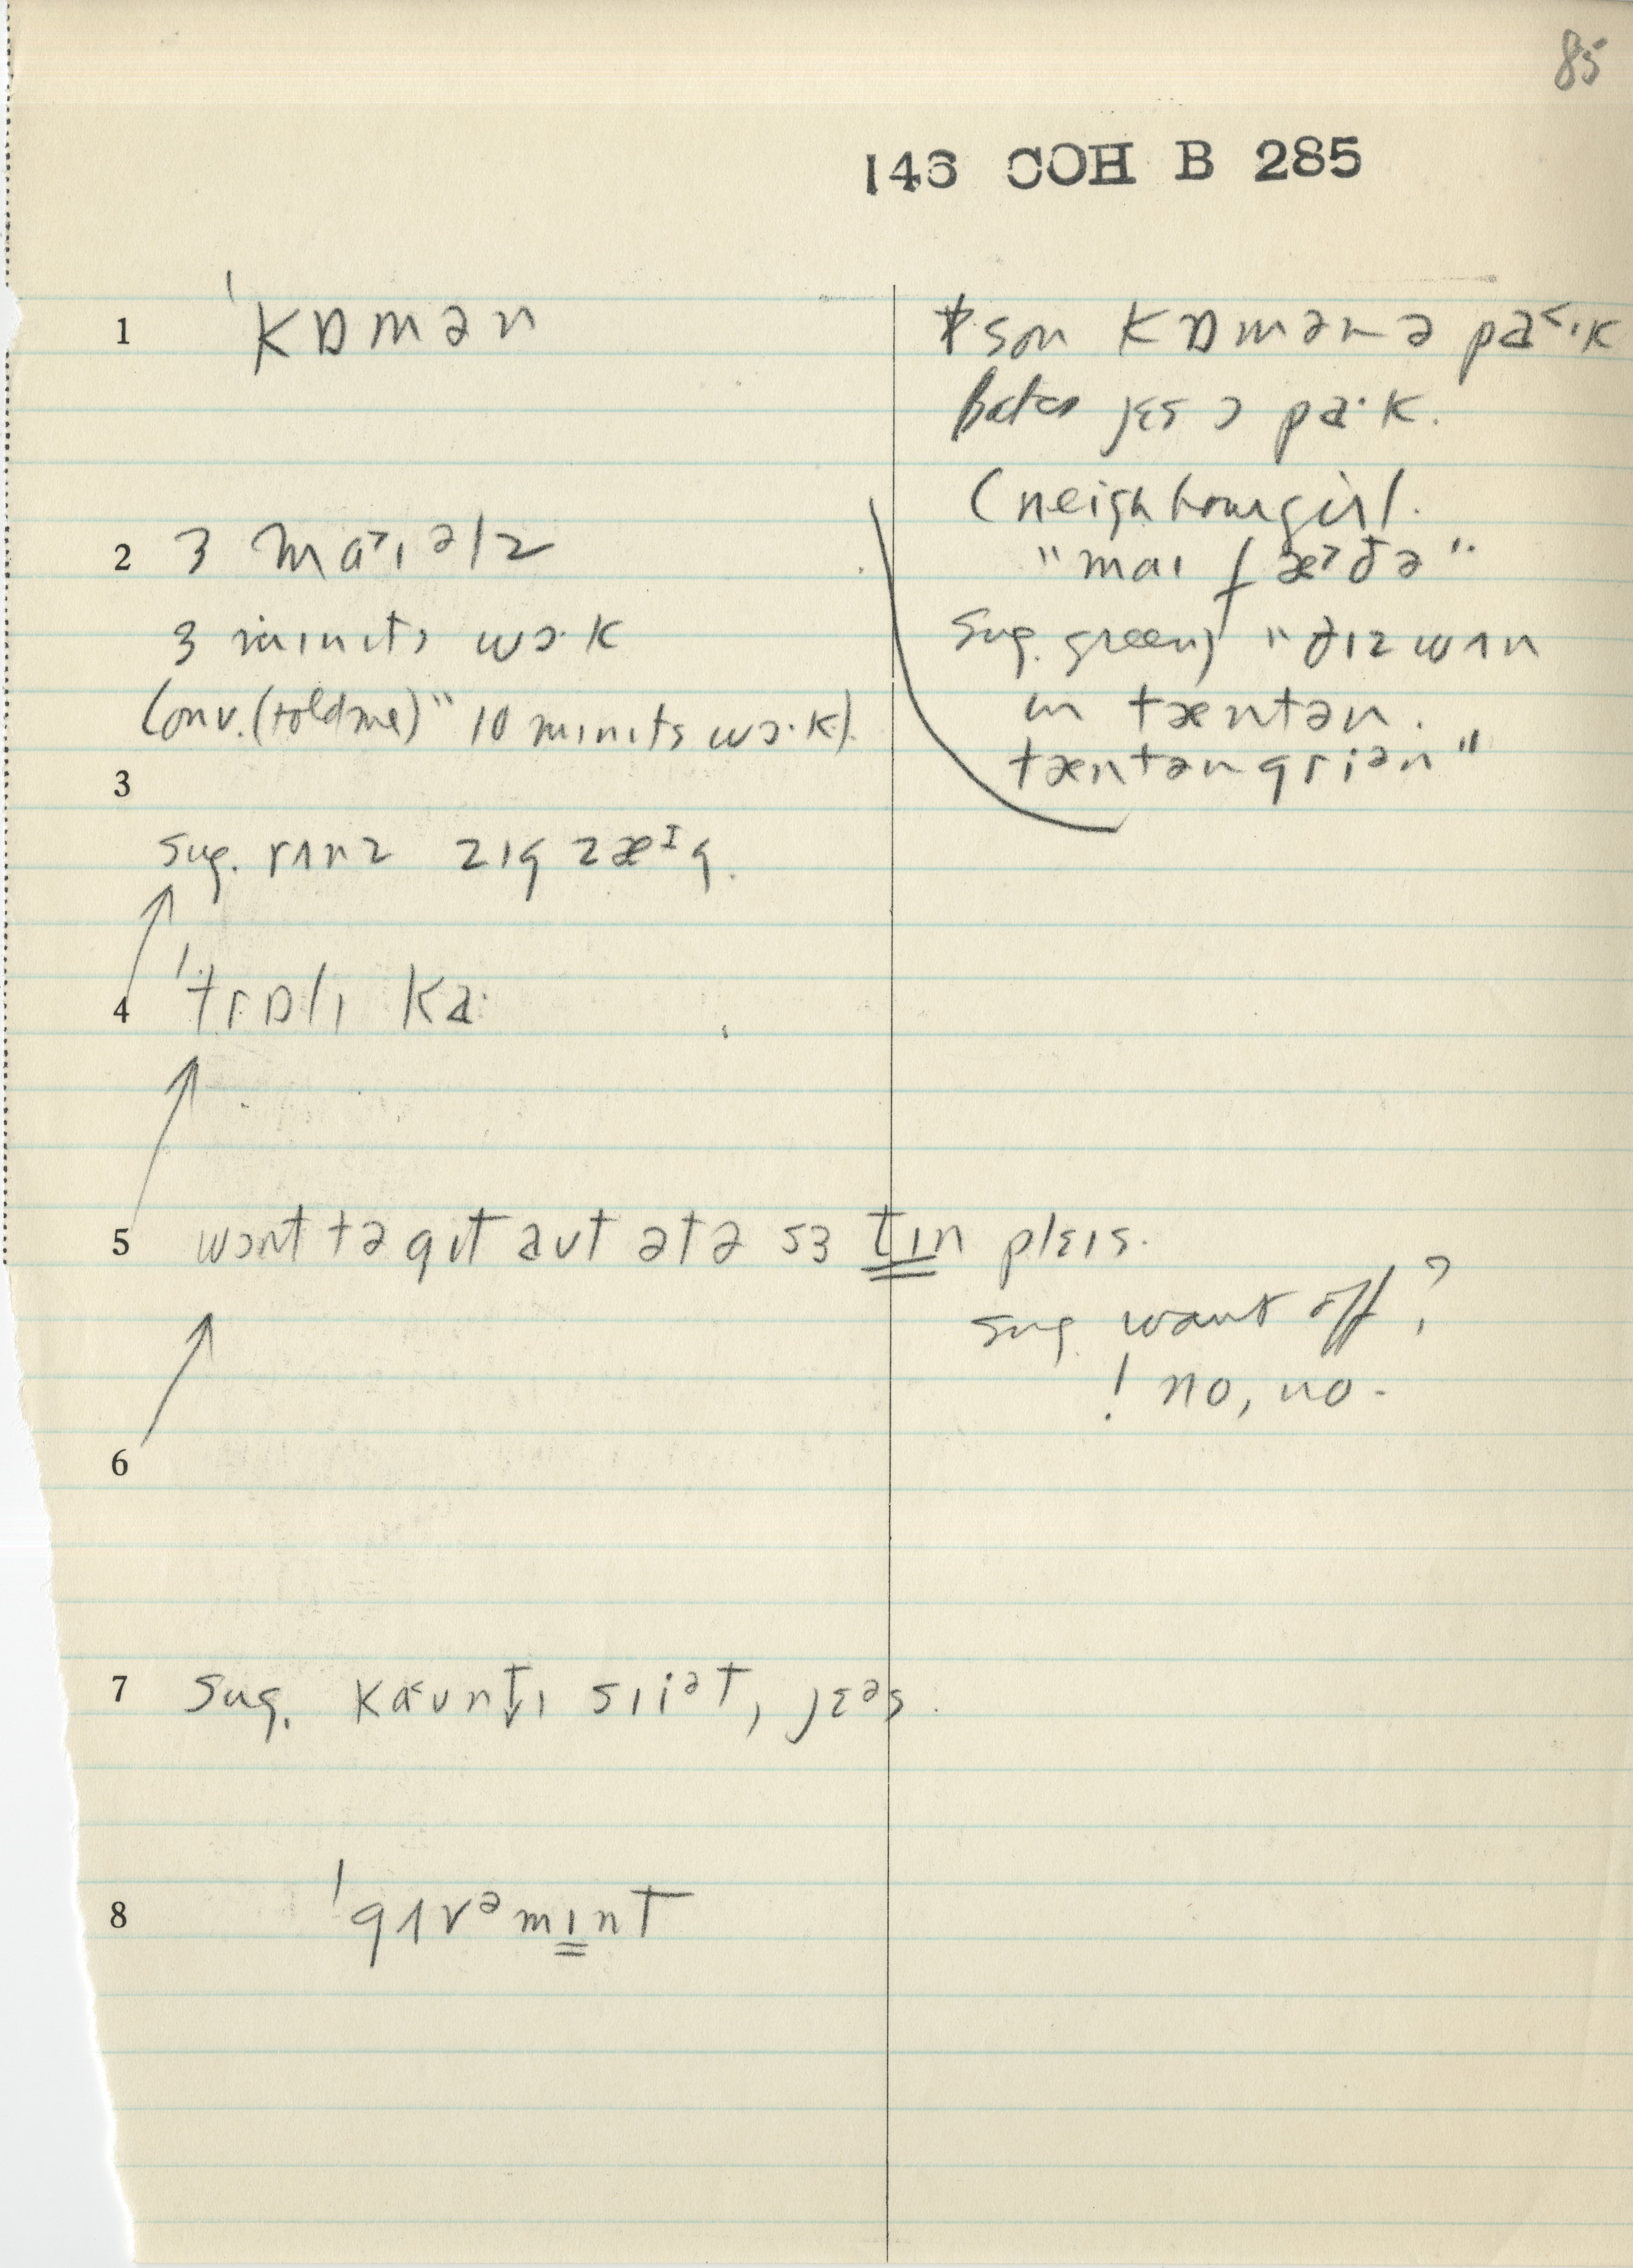 85
146 COH B 285
1 ˈkɒmən
son kɒmən ə pa˂·k
bates jɛs ɔ pa·k.
(neighbour girl.
"maɪ fæ˃ðə"
sug. green) "ðɪz wʌn
in tæntən.
tæntən griən"
2 3 ma˃ɪəlz
3 minɪts wɔ·k
Conv. (told me) "10 mɪnɪts wɔ·k).
3
sug. rʌnz zɪg zæᶦg.
4 ˈtrɒlɪ ka·
5 wɒnt tə gɪt aʊt ət ə sɜtɪn plɛɪs.
sug want off?
! no, no.
6
7 sug. kaʊntɪ sɪiᵊt, jɛᵊs.
8 ˈgʌvᵊmɪnt